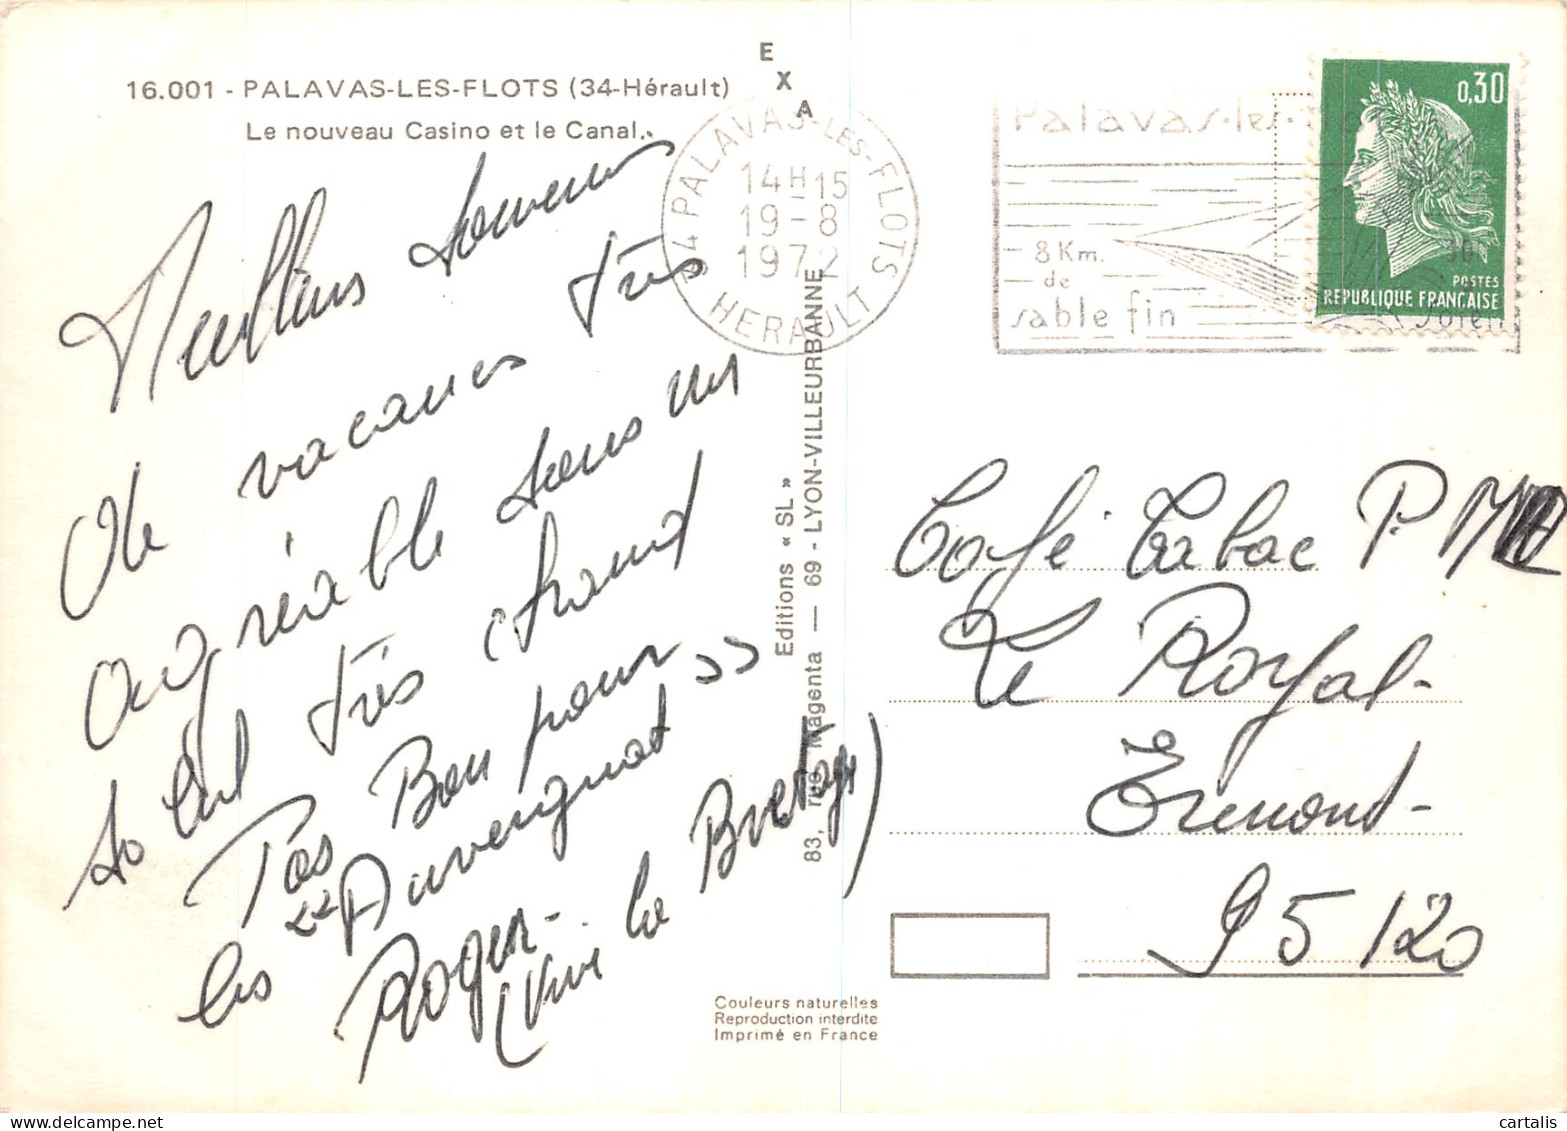 16.001 - PALAVAS-LES-FLOTS (34-Hérault)
Le nouveau Casino et le Canal.
E
X
A
Meilleurs souvenirs
de vacances très
agréable sous un
soleil très chaud
Pas Bon pour
les "Auvergnat"
Roger -
(Vive la Bretagne)
34 PALAVAS-LES-FLOTS
14H15
19-8
1972
HERAULT
Palavas-les-
8 Km.
de
sable fin
Soleil
0,30
POSTES
REPUBLIQUE FRANÇAISE
Editions « SL »
83, rue Magenta — 69 - LYON-VILLEURBANNE
Café Tabac P.M
Le Royal-
Ermont-
95120
Couleurs naturelles
Reproduction interdite
Imprimé en France
cartalis